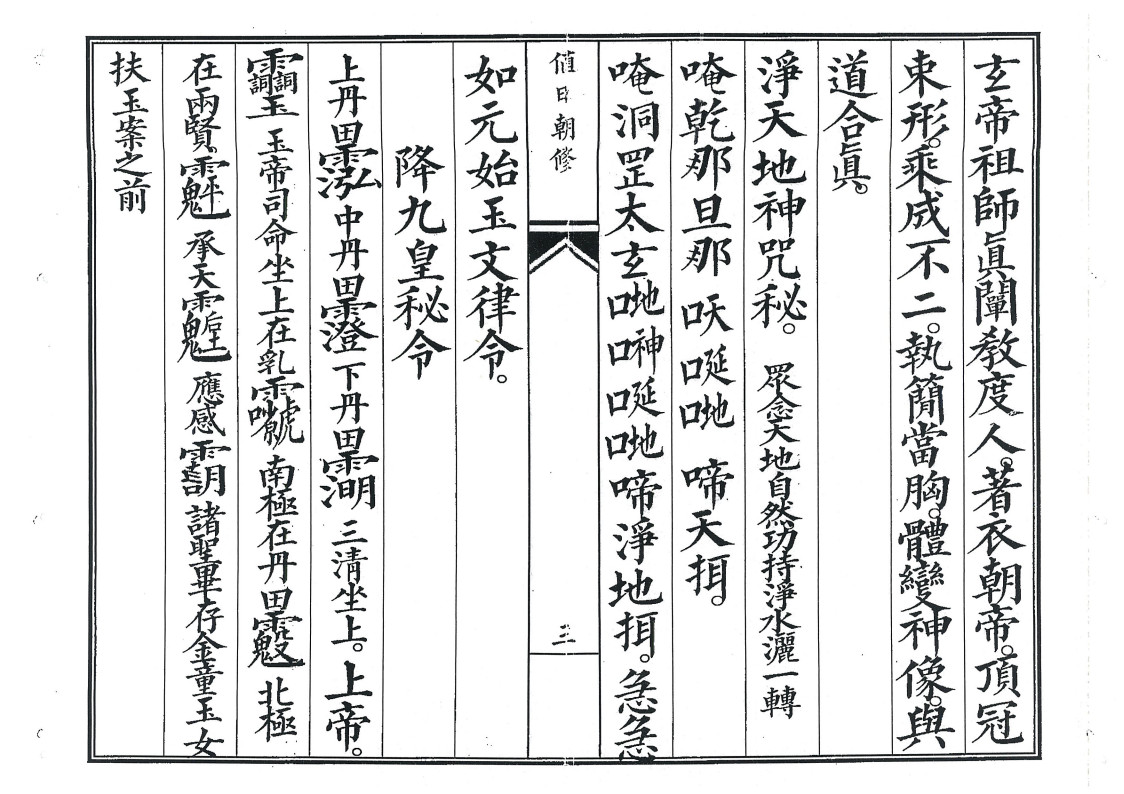 玄帝祖師眞闡教度人。著衣朝帝。頂冠
束形。乘成不二。執簡當胸。體變神像。與
道合眞。
淨天地神咒秘。 眾念天地自然功持淨水灑一轉
唵乾那旦那 ⿰口天唌⿰口地 啼天挕。
唵洞罡太玄⿰口地⿰口神唌⿰口地啼淨地挕。急急
值日朝修 三
如元始玉文律令。
降九皇秘令
上丹田⿱雨泓 中丹田⿱雨澄 下丹田 三清坐上。上帝。
玉帝司命坐上在乳 南極在丹田 北極
在兩賢。 承天 應感 諸聖畢存金童玉女
扶玉案之前